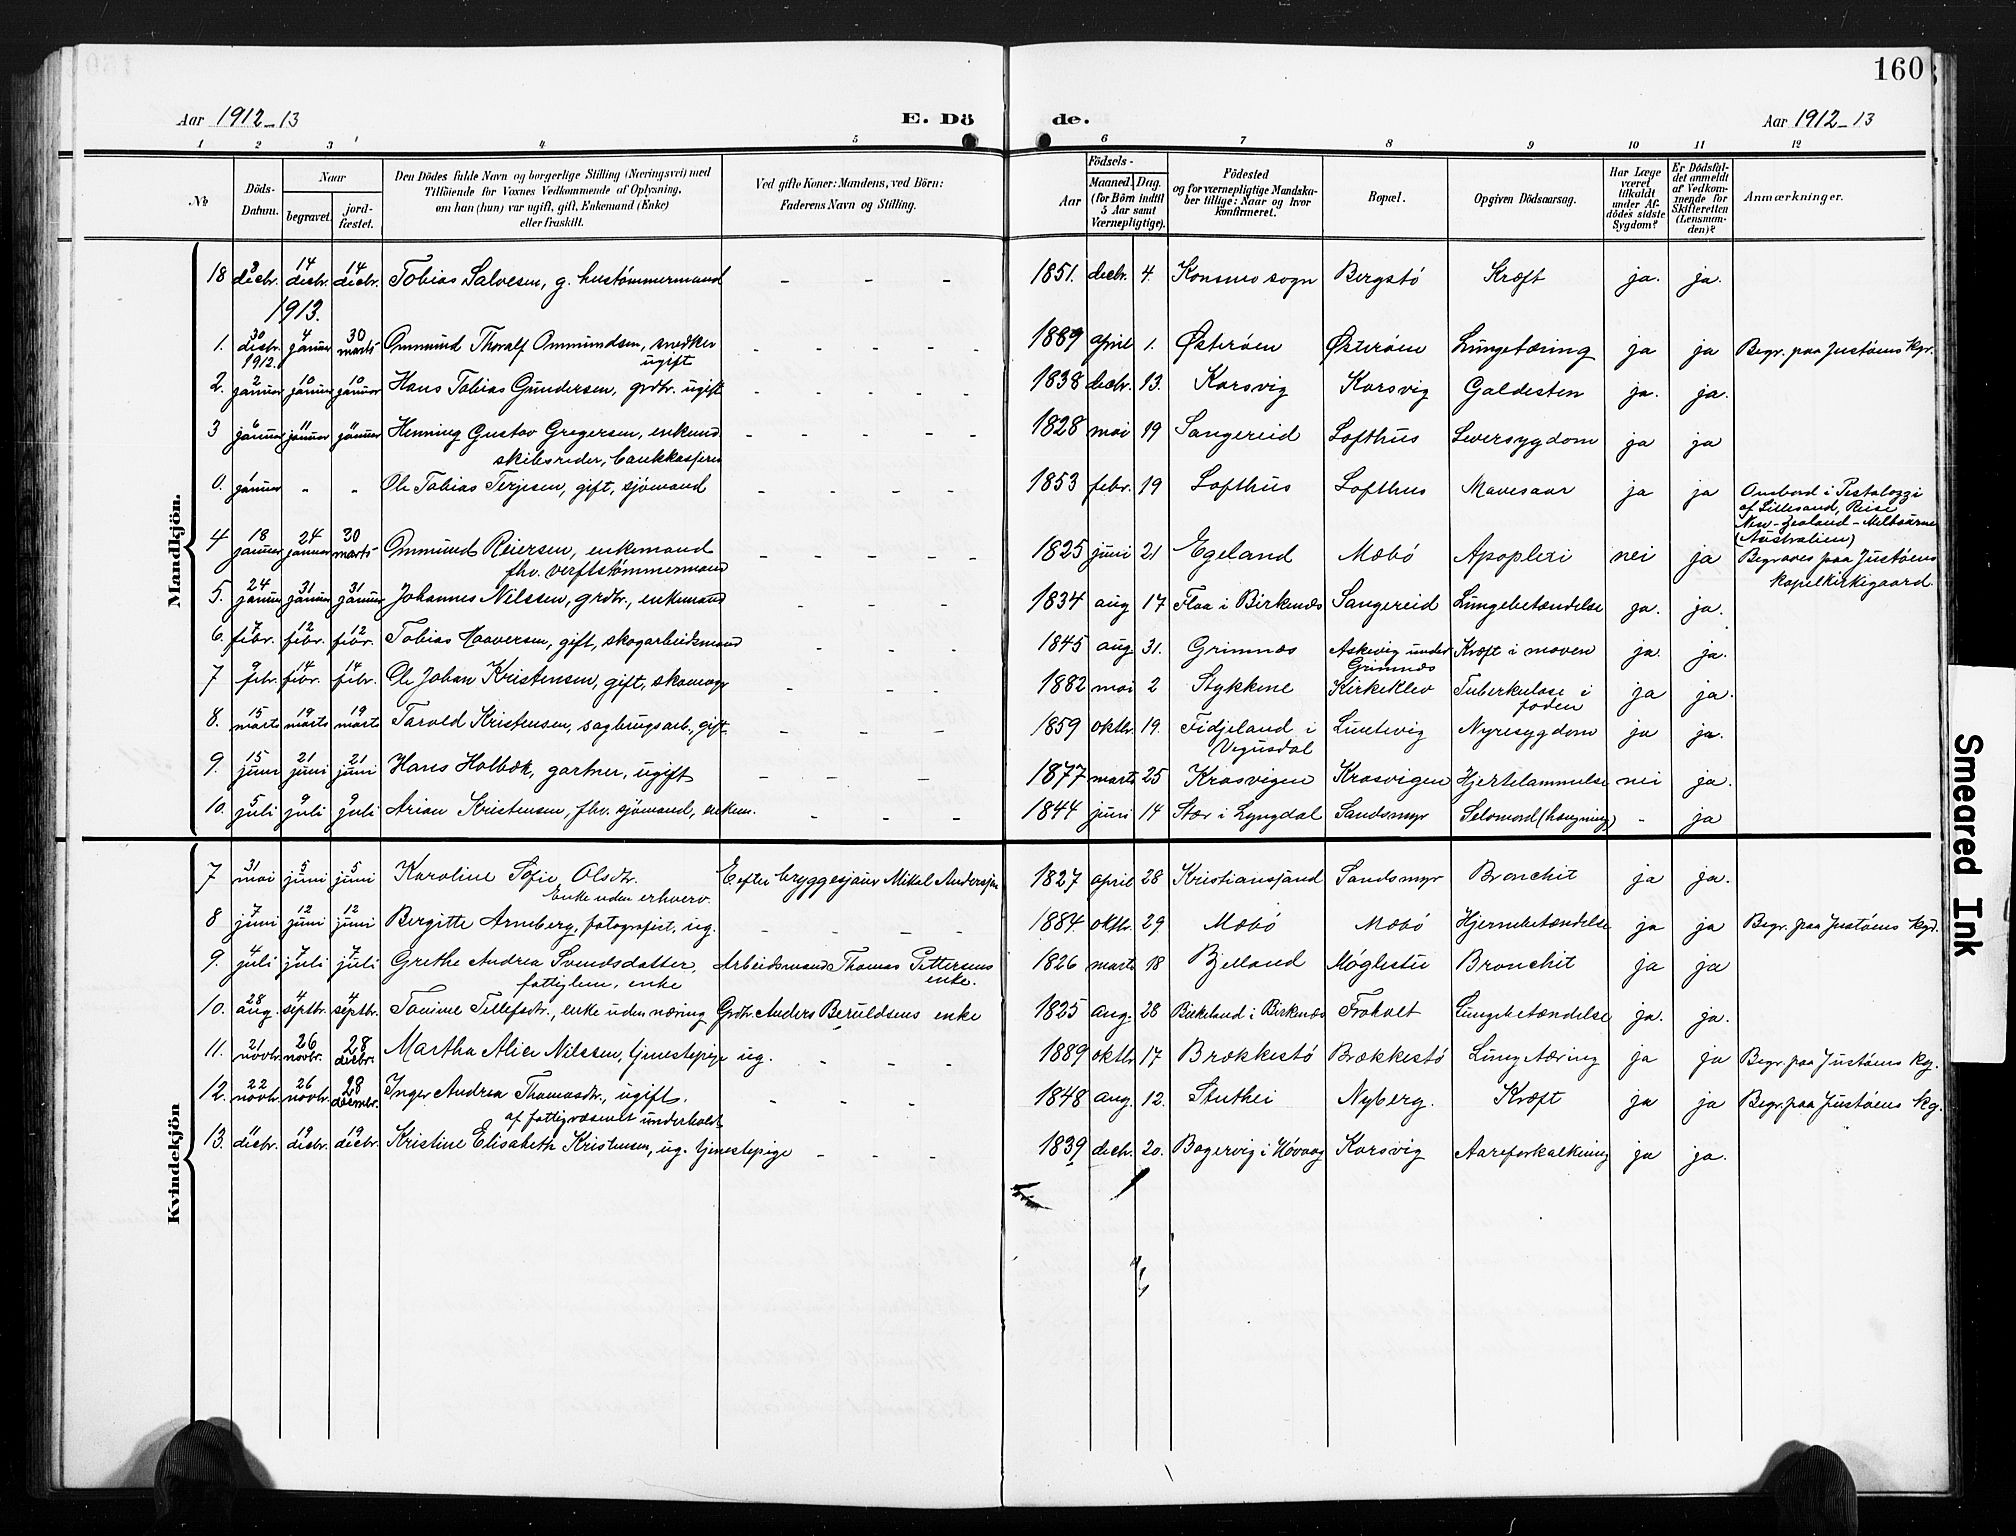 160
Aar 1912-13 E. Dö de. Aar 1912-13
1 2 3 4 5 6 7 8 9 10 11 12
No
Döds-Datum.
Naar
begravet.
jordfæstet.
Den Dödes fulde Navn og borgerlige Stilling (Næringsvei) med
Tilföiende for Voxnes Vedkommende af Oplysning,
om han (hun) var ugift, gift, Enkemand (Enke)
eller fraskilt.
Ved gifte Koner: Mandens, ved Börn:
Faderens Navn og Stilling.
Födsels-
Aar
Maaned. Dag.
(for Börn indtil
5 Aar samt
Værnepligtige).
Födested
og for værnepligtige Mandskaber tillige: Naar og hvor
konfirmeret.
Bopæl.
Opgiven Dödsaarsag.
Har Læge
været
tilkaldt
under Afdödes sidste
Sygdom?
Er Dödsfaldet anmeldt
af Vedkommende for
Skifteretten
(Lensmanden)?
Anmærkninger.
Mandkjön.
18 3 decbr. 14 decbr. 14 decbr. Tobias Salvesen, g. hustømmermand - - - 1851. decbr. 4. Konsmo sogn Bergstø Kræft ja. ja.
1913.
1. 30 decbr. 1912. 4 januar 30 marts Ommund Thoralf Ommundsen, snedker - - - 1889 april 1. Østerøen Østerøen Lungetæring ja ja Begr. paa Justøens kgr.
ugift
2. 2 januar 10 januar 10 januar Hans Tobias Gundersen, grdbr. ugift - - - 1838 decbr. 13. Korsvig Korsvig Galdesten ja. ja.
3 6 januar 11 januar 11 januar Henning Gustav Gregersen, enkemd. - - - 1828 mai 19 Sangereid Lofthus Leversygdom ja ja
skibsreder, bankkasserer
0. 1 januar " " Ole Tobias Terjesen, gift, sjømand - - - 1853 febr. 19 Lofthus Lofthus Mavesaar ja ja Ombord i Pestalozzi
af Lillesand, Reise
New-Zealand-Melbourne
(Australien)
4 18 januar 24 januar 30 marts Ommund Reiersen, enkemand - - - 1825 juni 21 Egeland Mæbø Apoplexi nei ja Begraves paa Justøens
fhv. verftstømmermand kapelkirkigaard.
5. 24 januar 31 januar 31 januar Johannes Nilssen, grdbr., enkemand - - - 1834 aug 17 Flaa i Birkenæs Sangereid Lungebetændelse ja. ja.
6. 7 febr. 12 febr. 12 febr. Tobias Haaversen, gift, skogarbeidsmand - - - 1845 aug 31. Grimnæs Askevig under Kræft i maven ja. ja.
Grimnæs
7 9 febr. 14 febr. 14 febr. Ole Johan Kristensen, gift, skomager - - - 1882 mai 2 Stykkene Kirkeklev Tuberkulose i ja ja.
foden
8. 15 mart 19 marts 19 mart Tarald Kristensen, sagbrugsarb., gift. - - - 1859 oktbr. 19. Fidjeland i Luntevig Nyresygdom ja ja.
Vegusdal
9. 15 juni 21 juni 21 juni Hans Holbæk, gartner, ugift - - - 1877 marts 25 Krosvigen Krosvigen Hjertelammelse nei ja.
10. 5 juli 9 juli 9 juli Arian Kristensen, fhv. sjømand, enkem. - - - 1844 juni 14 Stær i Lyngdal Sandsmyr Selvmord (hængning) - ja
Kvindekjön
7 31 mai 5 juni 5 juni Karoline Sofie Olsdtr. E. efter bryggesjauer Mikal Andersen 1827 april 28 Kristiansand Sandsmyr Bronchit ja ja.
Enke uden erhverv.
8 7 juni 12 juni 12 juni Bergitte Arneberg, fotografist, ug. - - - - 1884 oktbr. 29 Mæbø Mæbø Hjernebetændelse ja ja Begr. paa Justøens kgd.
9. 4 juli 7 juli 7 juli Grethe Andrea Svendsdatter, Arbeidsmand Thomas Pettersens 1826 marts 18 Bjelland Møglestu Bronchit ja ja
fattiglem, enke enke.
10. 28 aug. 4 septbr. 4 septbr. Tomine Tellefsdtr., enke uden næring Grdbr. Anders Beruldsens enke 1825 aug. 28 Birkeland i Birkenæs Froholt Lungebetændelse ja. ja.
11. 21 novbr. 26 novbr. 28 decbr. Martha Alice Nilssen, tjenestepige ug. - - - 1889 oktbr. 17 Brækkestø Brækkestø Lungetæring ja ja Begr. paa Justøens kg.
12. 22 novbr. 26 novbr. 28 decmbr. Inger Andrea Thomasdtr., ugift. - - - 1848 aug. 12. Stuthei Nyberg. Kræft ja ja Begr. paa Justøens kg.
af fattigvæsenet underholdt
13. 11 decbr. 19 decbr. 19 decbr. Kristine Elisabeth Kristensen, ug. tjenestepige - - - 1839 decbr. 20. Bagervig i Høvaag Korsvig Aareforkalkning ja ja.
Smeared Ink